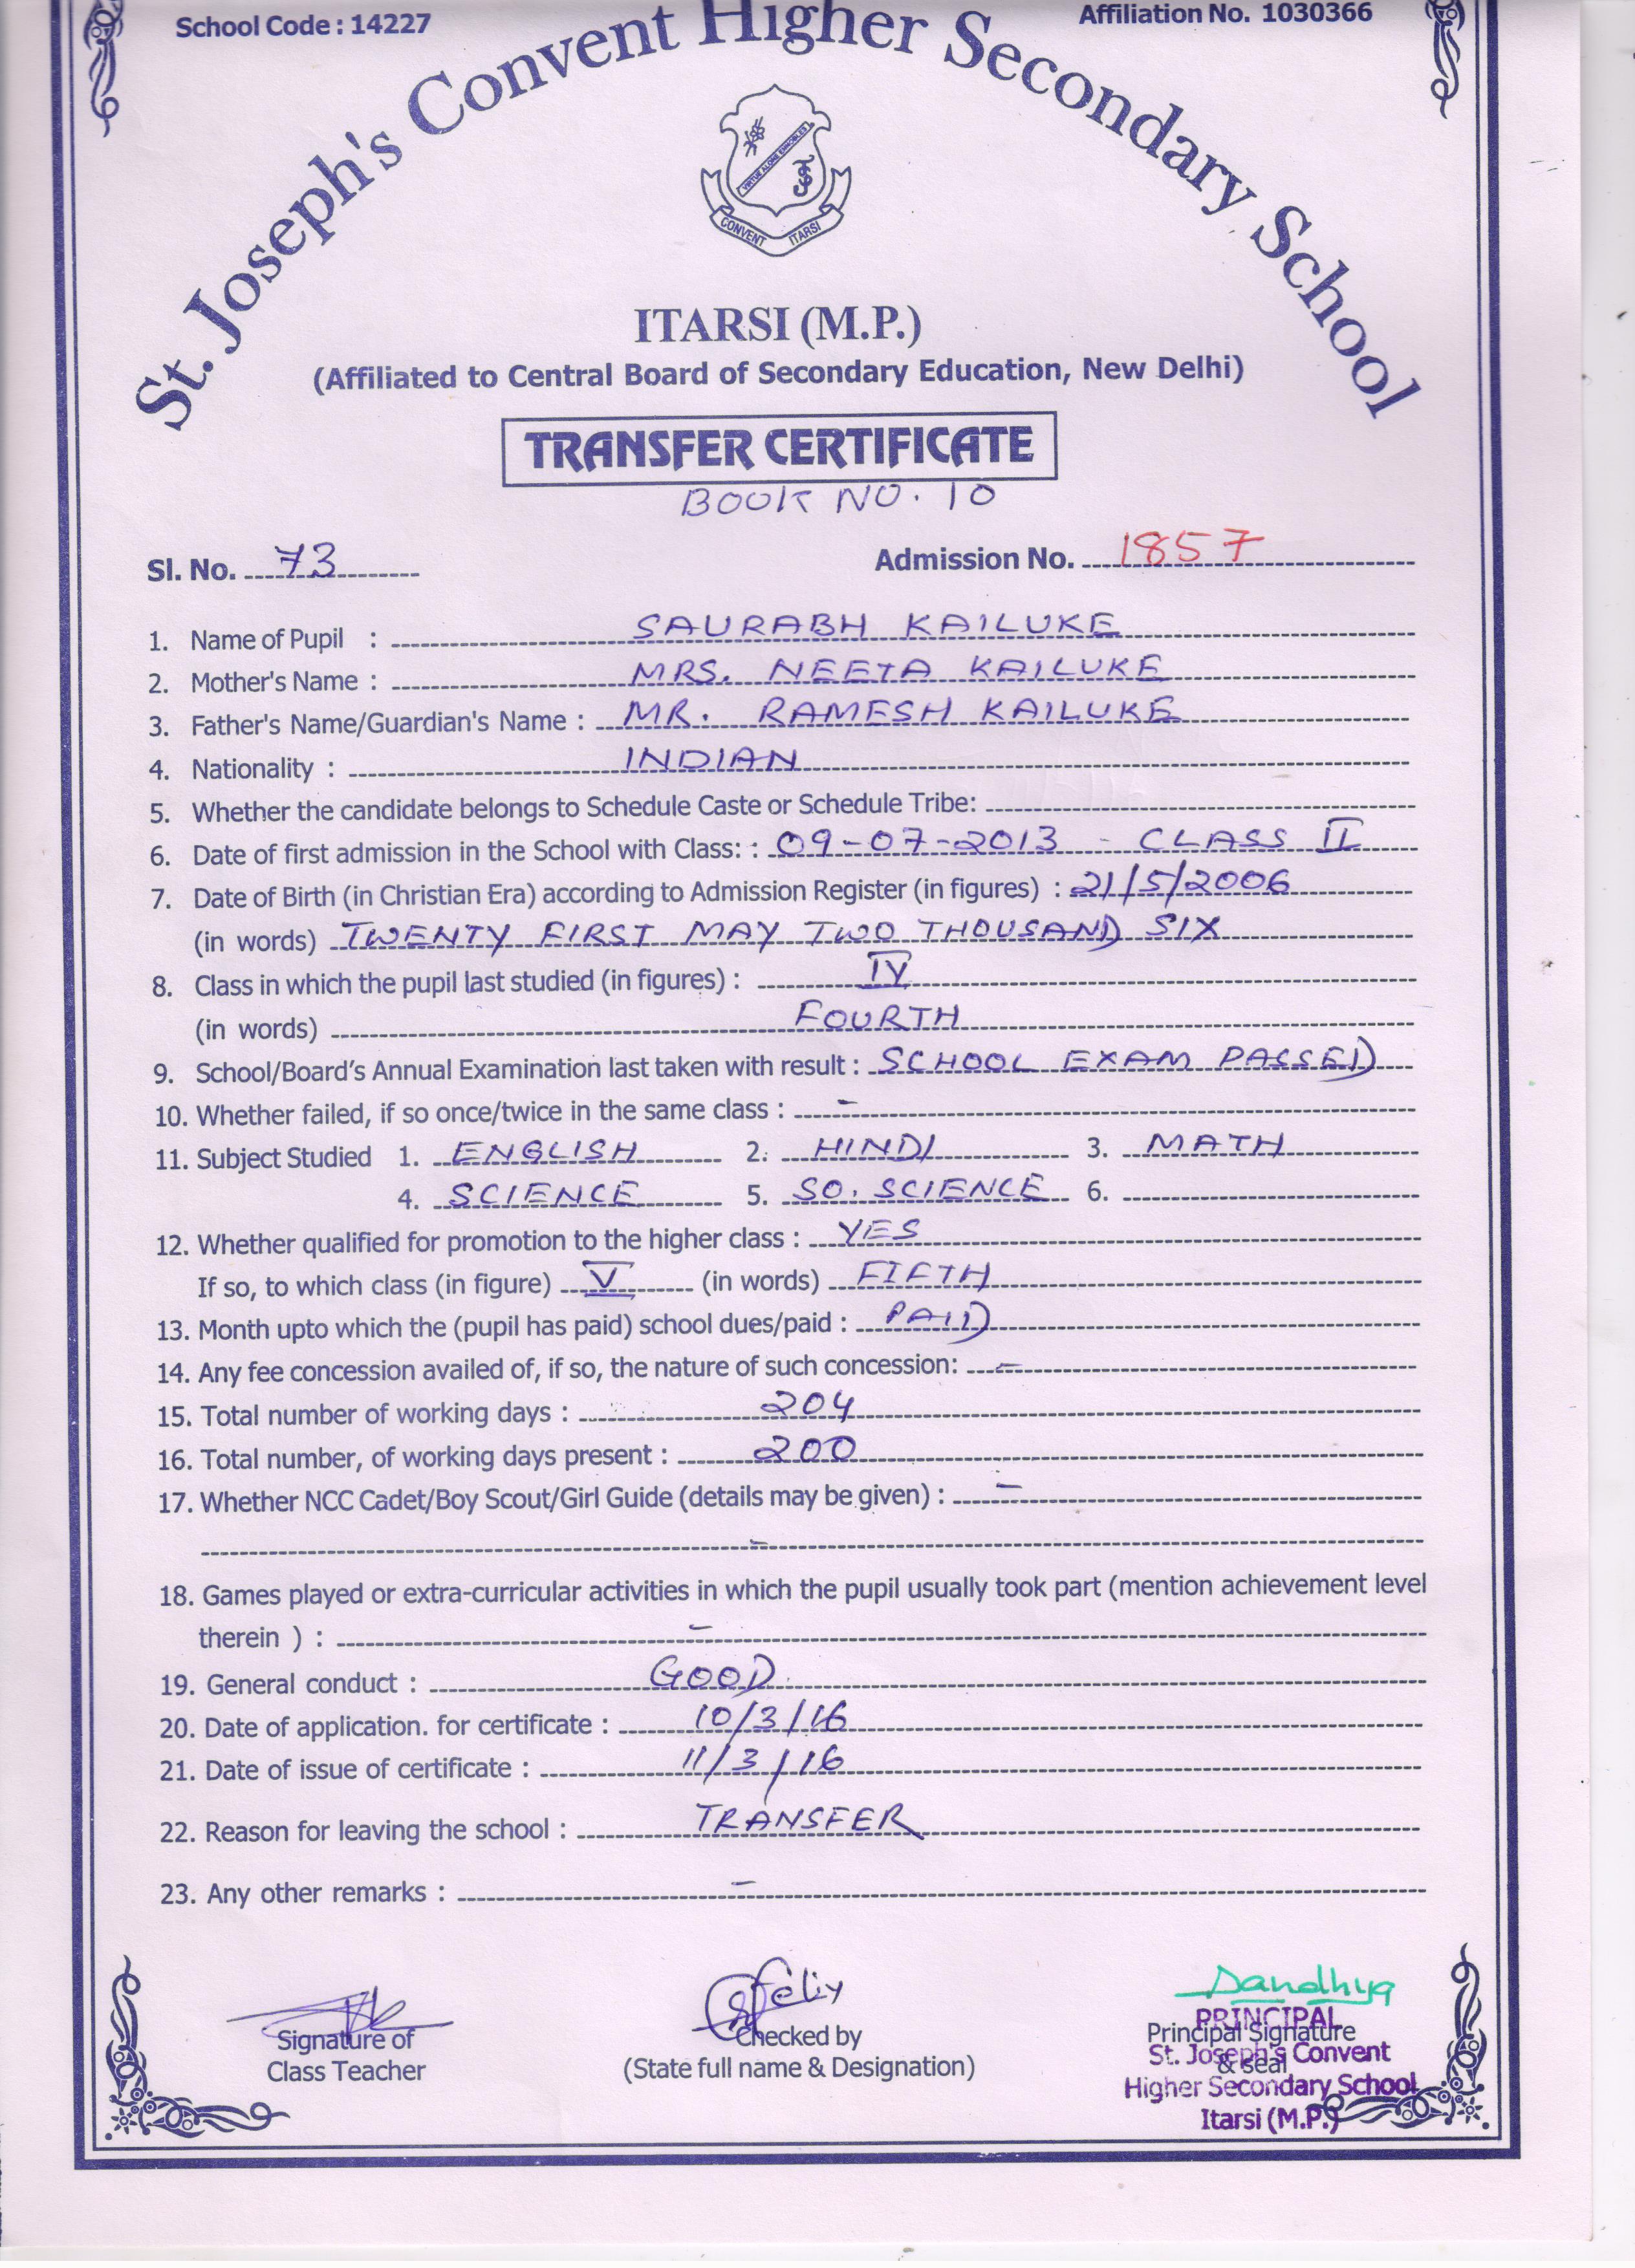 School Code : 14227
Affiliation No. 1030366
St. Joseph's Convent Higher Secondary School
VIRTUE ALONE ENNOBLES
CONVENT ITARSI
ITARSI (M.P.)
(Affiliated to Central Board of Secondary Education, New Delhi)
TRANSFER CERTIFICATE
BOOK NO. 10
Sl. No. 73 Admission No. 1857
1. Name of Pupil : SAURABH KAILUKE
2. Mother's Name : MRS. NEETA KAILUKE
3. Father's Name/Guardian's Name : MR. RAMESH KAILUKE
4. Nationality : INDIAN
5. Whether the candidate belongs to Schedule Caste or Schedule Tribe:
6. Date of first admission in the School with Class: : 09-07-2013 - CLASS II
7. Date of Birth (in Christian Era) according to Admission Register (in figures) : 21/5/2006
(in words) TWENTY FIRST MAY TWO THOUSAND SIX
8. Class in which the pupil last studied (in figures) : IV
(in words) FOURTH
9. School/Board's Annual Examination last taken with result : SCHOOL EXAM PASSED
10. Whether failed, if so once/twice in the same class : -
11. Subject Studied 1. ENGLISH 2. HINDI 3. MATH
4. SCIENCE 5. SO. SCIENCE 6.
12. Whether qualified for promotion to the higher class : YES
If so, to which class (in figure) V (in words) FIFTH
13. Month upto which the (pupil has paid) school dues/paid : PAID
14. Any fee concession availed of, if so, the nature of such concession: -
15. Total number of working days : 204
16. Total number, of working days present : 200
17. Whether NCC Cadet/Boy Scout/Girl Guide (details may be given) : -
-
18. Games played or extra-curricular activities in which the pupil usually took part (mention achievement level
therein ) : -
19. General conduct : GOOD
20. Date of application. for certificate : 10/3/16
21. Date of issue of certificate : 11/3/16
22. Reason for leaving the school : TRANSFER
23. Any other remarks : -
Sandhya
PRINCIPAL
Signature of Checked by Principal Signature
St. Joseph's Convent
Class Teacher (State full name & Designation) & seal
Higher Secondary School
Itarsi (M.P.)